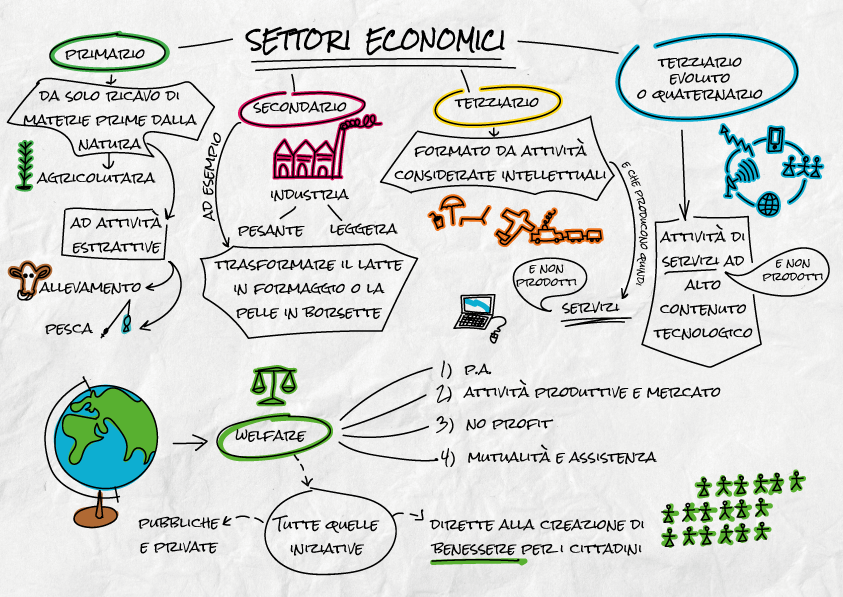 SETTORI ECONOMICI
PRIMARIO
DA SOLO RICAVO DI
MATERIE PRIME DALLA
NATURA
AGRICOLUTARA
AD ATTIVITÀ
ESTRATTIVE
ALLEVAMENTO
PESCA
SECONDARIO
AD ESEMPIO
INDUSTRIA
PESANTE
LEGGERA
TRASFORMARE IL LATTE
IN FORMAGGIO O LA
PELLE IN BORSETTE
TERZIARIO
FORMATO DA ATTIVITÀ
CONSIDERATE INTELLETTUALI
E CHE PRODUCONO QUINDI
E NON
PRODOTTI
SERVIZI
TERZIARIO
EVOLUTO
O QUATERNARIO
ATTIVITÀ DI
SERVIZI AD
ALTO
CONTENUTO
TECNOLOGICO
E NON
PRODOTTI
WELFARE
1) P.A.
2) ATTIVITÀ PRODUTTIVE E MERCATO
3) NO PROFIT
4) MUTUALITÀ E ASSISTENZA
TUTTE QUELLE
INIZIATIVE
PUBBLICHE
E PRIVATE
DIRETTE ALLA CREAZIONE DI
BENESSERE PER I CITTADINI